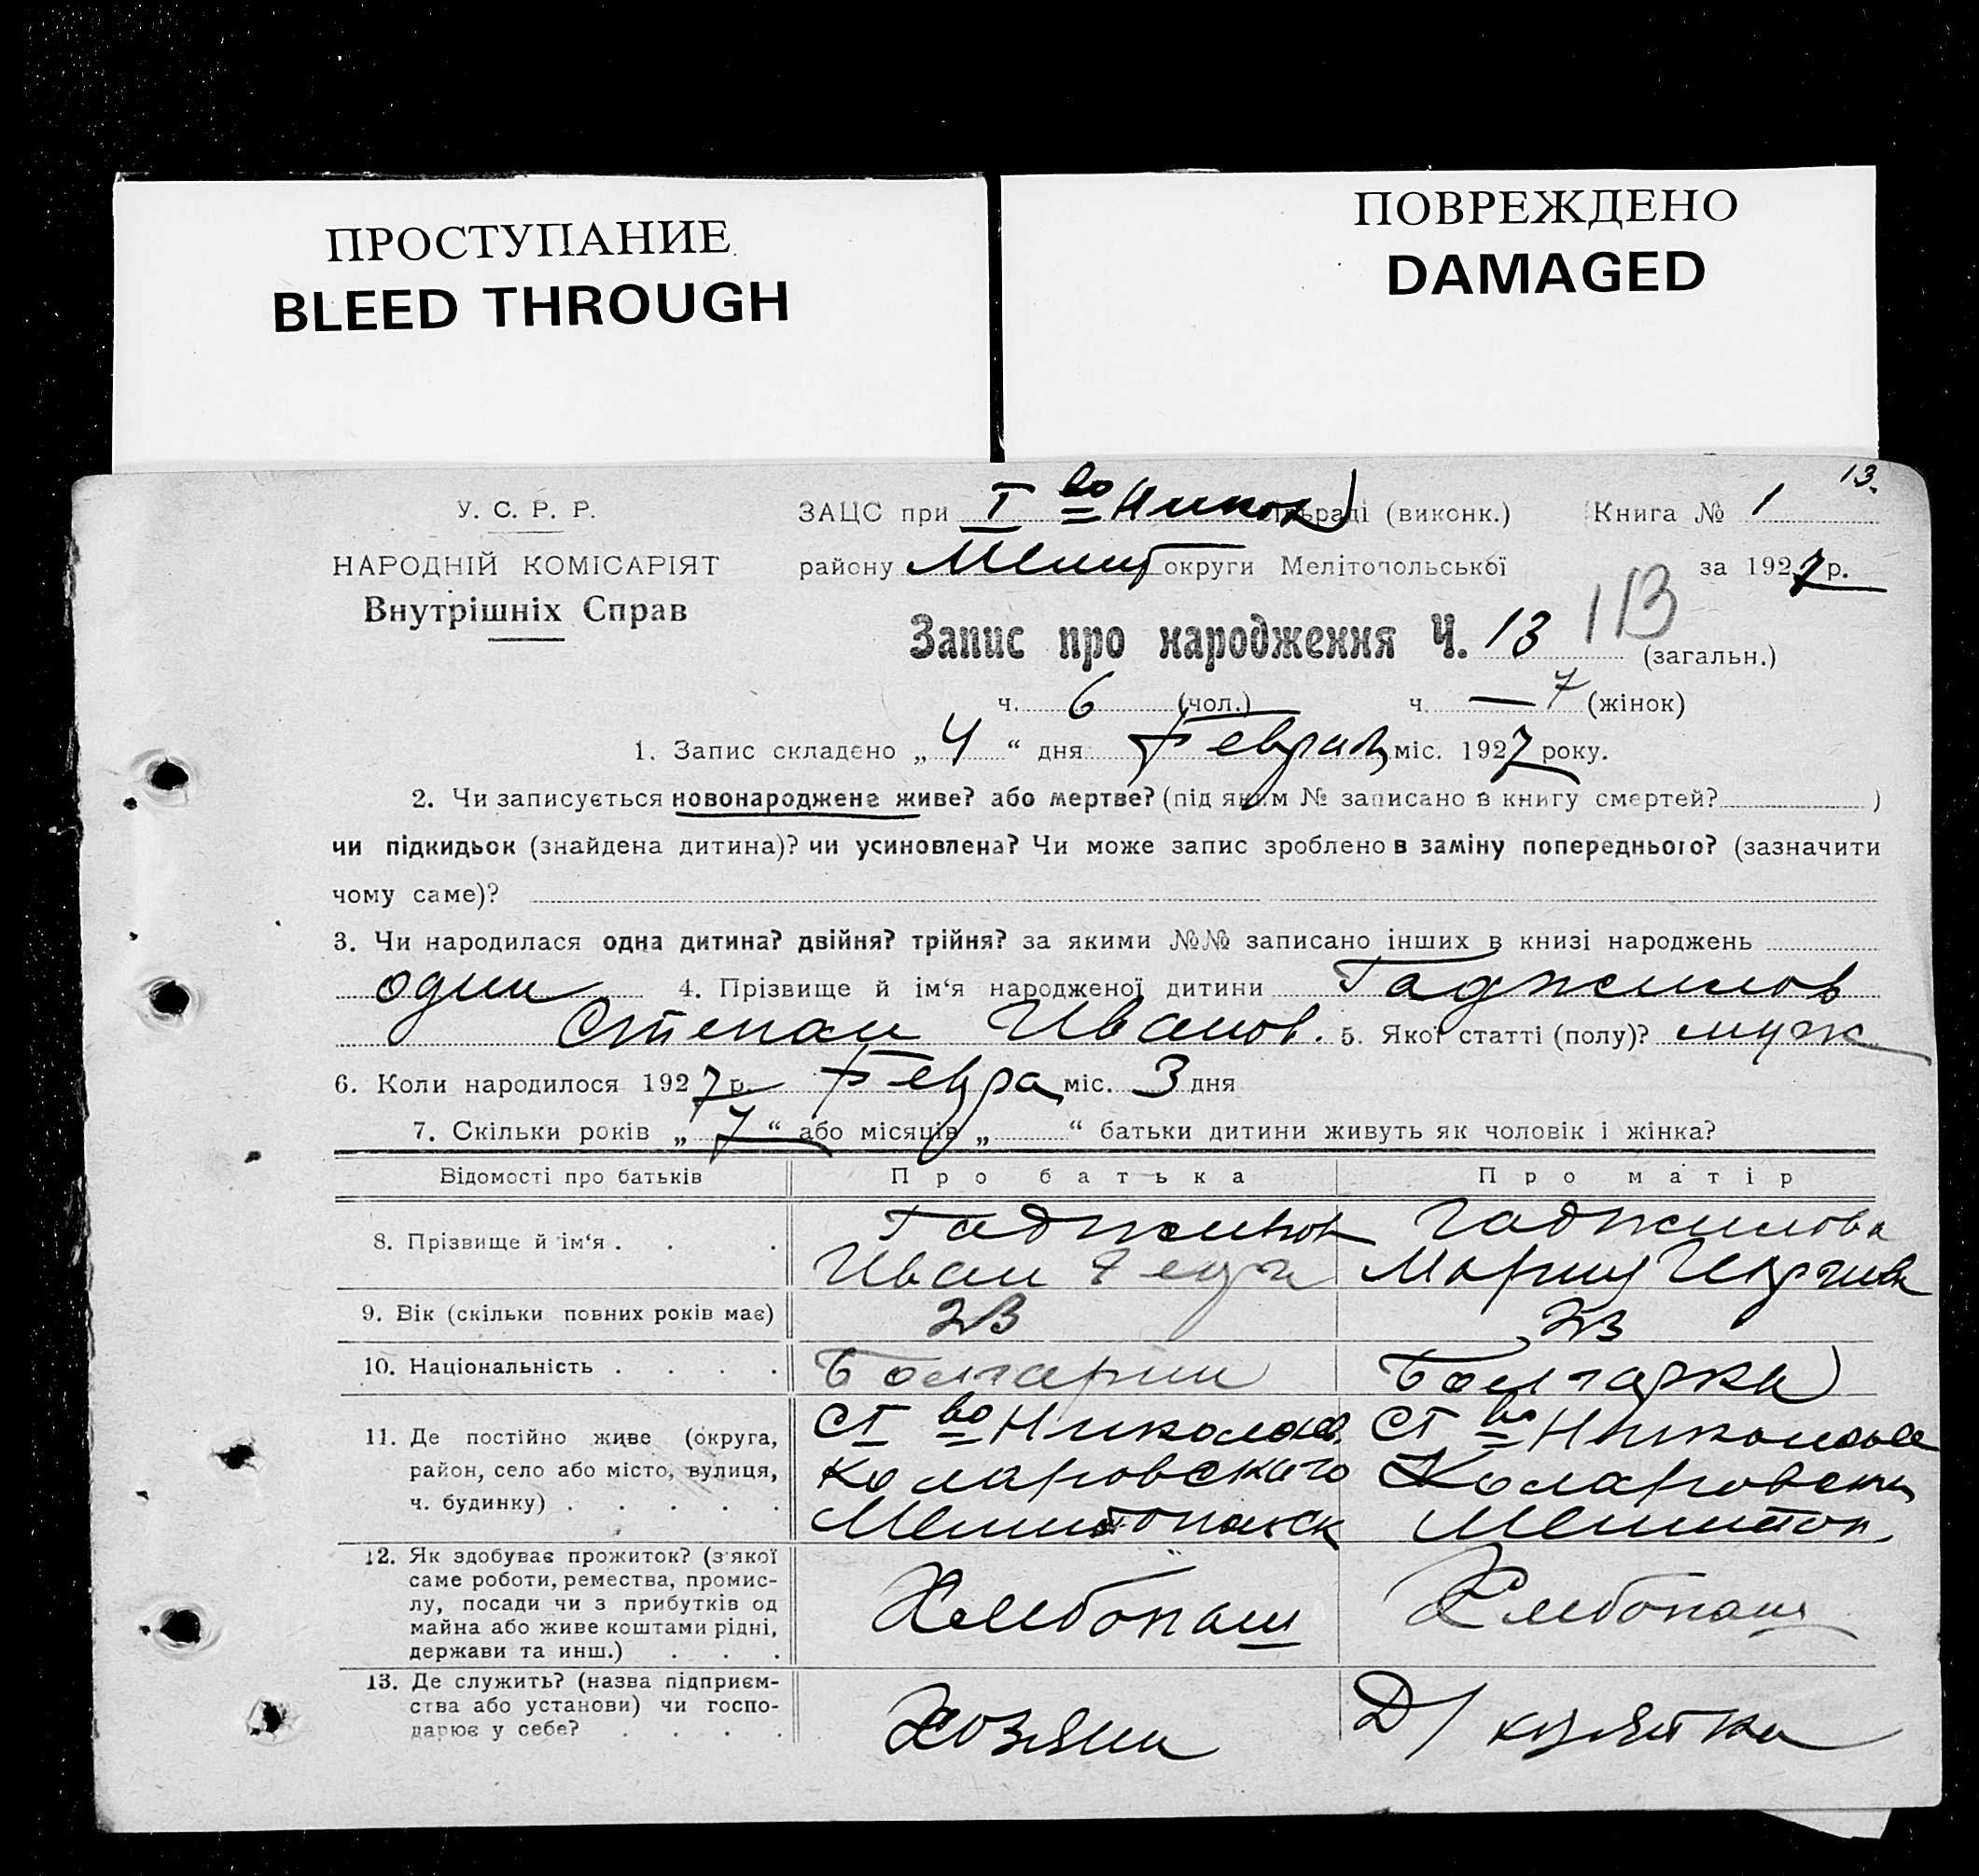 ПРОСТУПАНИЕ
BLEED THROUGH
ПОВРЕЖДЕНО
DAMAGED
13.
У. С. Р. Р.
ЗАЦС при І во Никол сільраді (виконк.) Книга № 1
НАРОДНІЙ КОМІСАРІЯТ
району Мелит округи Мелітопольської за 1927 р.
Внутрішніх Справ
Запис про народження Ч. 13 13
(загальн.)
ч. 6 (чол.) ч. — 7 (жінок)
1. Запис складено „4“ дня Феврал міс. 1927 року.
2. Чи записується новонароджене живе? або мертве? (під яким № записано в книгу смертей? )
чи підкидьок (знайдена дитина)? чи усиновлена? Чи може запис зроблено в заміну попереднього? (зазначити
чому саме)?
3. Чи народилася одна дитина? двійня? трійня? за якими №№ записано інших в книзі народжень
один 4. Прізвище й ім‘я народженої дитини Гаджилов
Степан Иванов. 5. Якої статті (полу)? муж
6. Коли народилося 1927 р. Февра міс. 3 дня
7. Скільки років „7“ або місяців „ “ батьки дитини живуть як чоловік і жінка?
Відомості про батьків Про батька Про матір
8. Прізвище й ім‘я . . . Гаджилов Гаджилова
Иван Мария
9. Вік (скільки повних років має) 23 23
10. Національність . . . . Болгарин Болгарка
11. Де постійно живе (округа, Ст во Николаев. Ст во Николаев
район, село або місто, вулиця, Коларовского Коларовски
ч. будинку) . . . . . Мелитопольск Мелитоп
12. Як здобуває прожиток? (з якої
саме роботи, ремества, промис-
лу, посади чи з прибутків од Хлебопаш Хлебопаш
майна або живе коштами рідні,
держави та инш.) . . .
13. Де служить? (назва підприєм-
ства або установи) чи госпо- Хозяин Д/ хозяйка
дарює у себе? . . . .